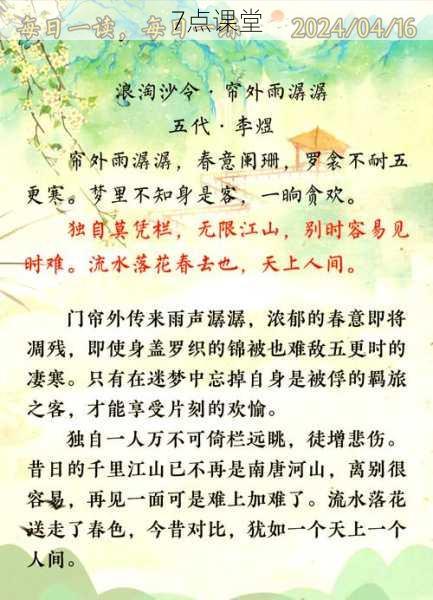 7点课堂
每日一读，每日一练 2024/04/16
浪淘沙令·帘外雨潺潺
五代·李煜
帘外雨潺潺，春意阑珊，罗衾不耐五
更寒。梦里不知身是客，一晌贪欢。
独自莫凭栏，无限江山，别时容易见
时难。流水落花春去也，天上人间。
门帘外传来雨声潺潺，浓郁的春意即将
凋残，即使身盖罗织的锦被也难敌五更时的
凄寒。只有在迷梦中忘掉自身是被俘的羁旅
之客，才能享受片刻的欢愉。
独自一人万不可倚栏远眺，徒增悲伤。
昔日的千里江山已不再是南唐河山，离别很
容易，再见一面可是难上加难了。流水落花
送走了春色，今昔对比，犹如一个天上一个
人间。